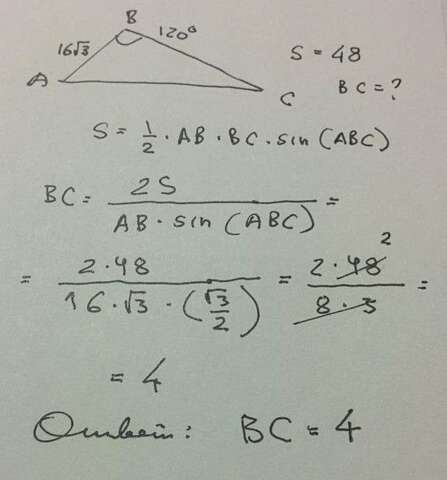 B
16√3
120°
S = 48
A
C
BC = ?
S = 1/2 · AB · BC · sin (ABC)
BC = 2S / AB · sin (ABC) =
= 2 · 48 / 16 · √3 · (√3/2) = 2 · 48 2 / 8 · 3 =
= 4
Ответ: BC = 4